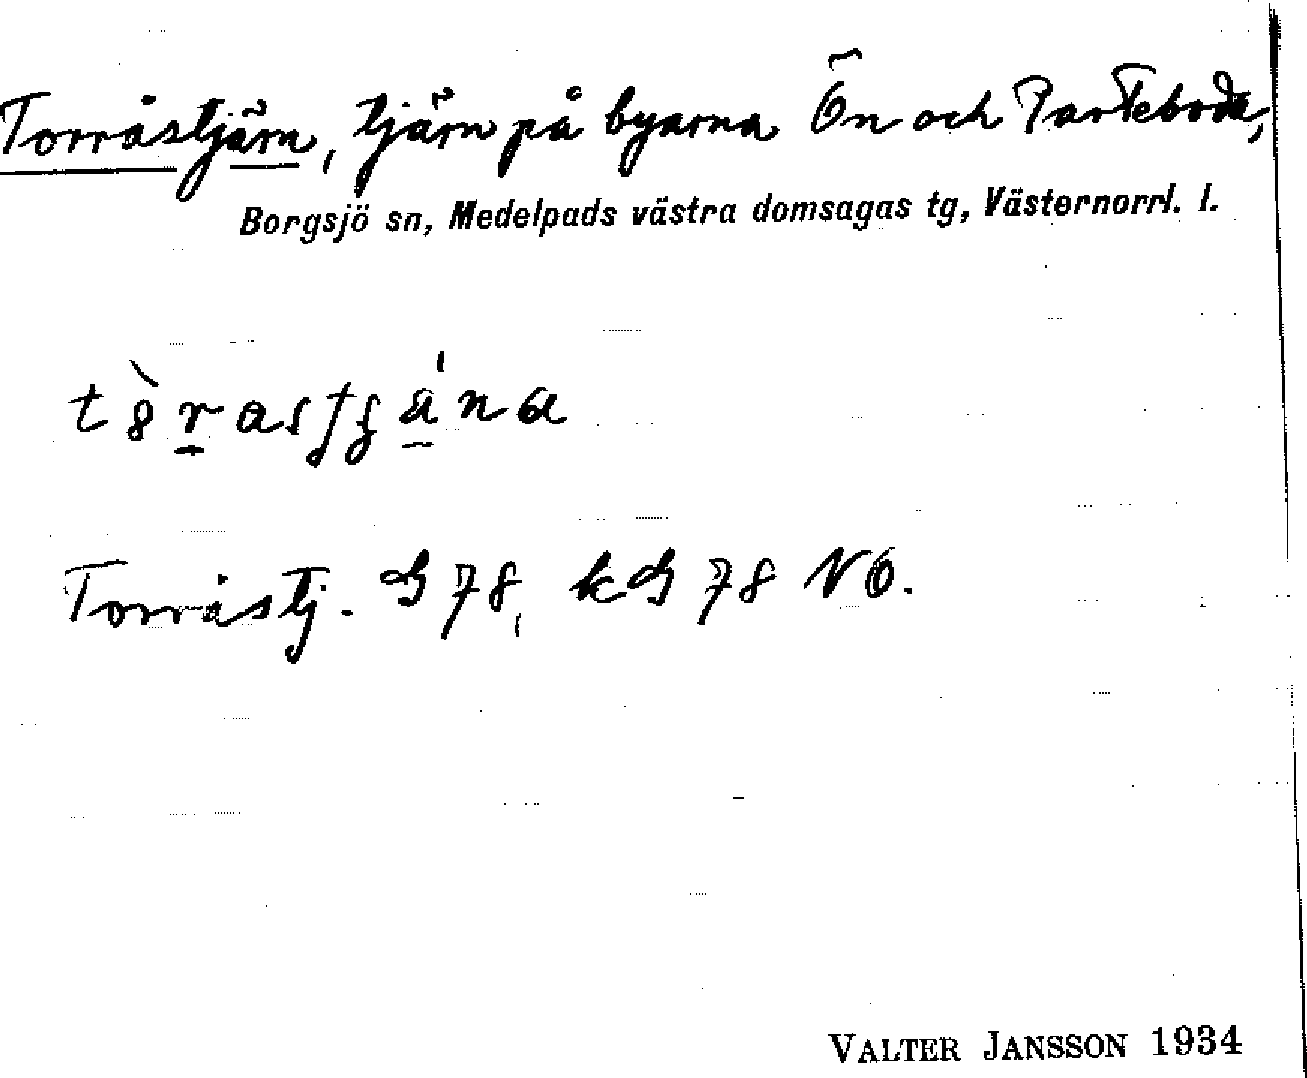 Torråstjärn, tjärn på byarna Ön och Parteboda,
Borgsjö sn, Medelpads västra domsagas tg, Västernorrl. l.
Torråstj. G 78, kG 78 NO.
VALTER JANSSON 1934